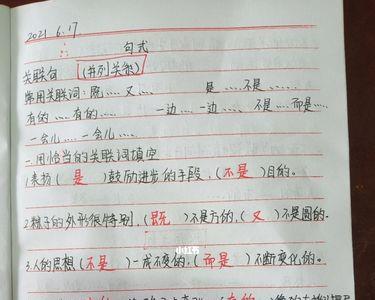 2021 6.17
句式
关联句 (并列关系)
常用关联词: 既....又.... 是....不是.....
有的....有的.... 一边....一边.... 不是....而是....
一会儿....一会儿....
一.用恰当的关联词填空
1.表扬(是)鼓励进步的手段,(不是)目的。
2.粽子的外形很特别,(既)不是方的,(又)不是圆的。
小红书
3.人的思想(不是)一成不变的,(而是)不断变化的。